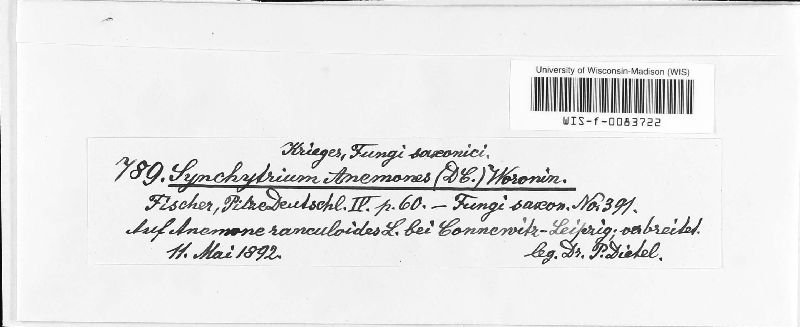 University of Wisconsin-Madison (WIS)
WIS-f-0083722
Krieger, Fungi saxonici.
789. Synchytrium Anemones (DC.) Woronin.
Fischer, Pilze Deutschl. IV. p. 60. — Fungi saxon. No. 391.
Auf Anemone ranculoides L. bei Connewitz-Leipzig, verbreitet.
11. Mai 1892. leg. Dr. P. Dietel.